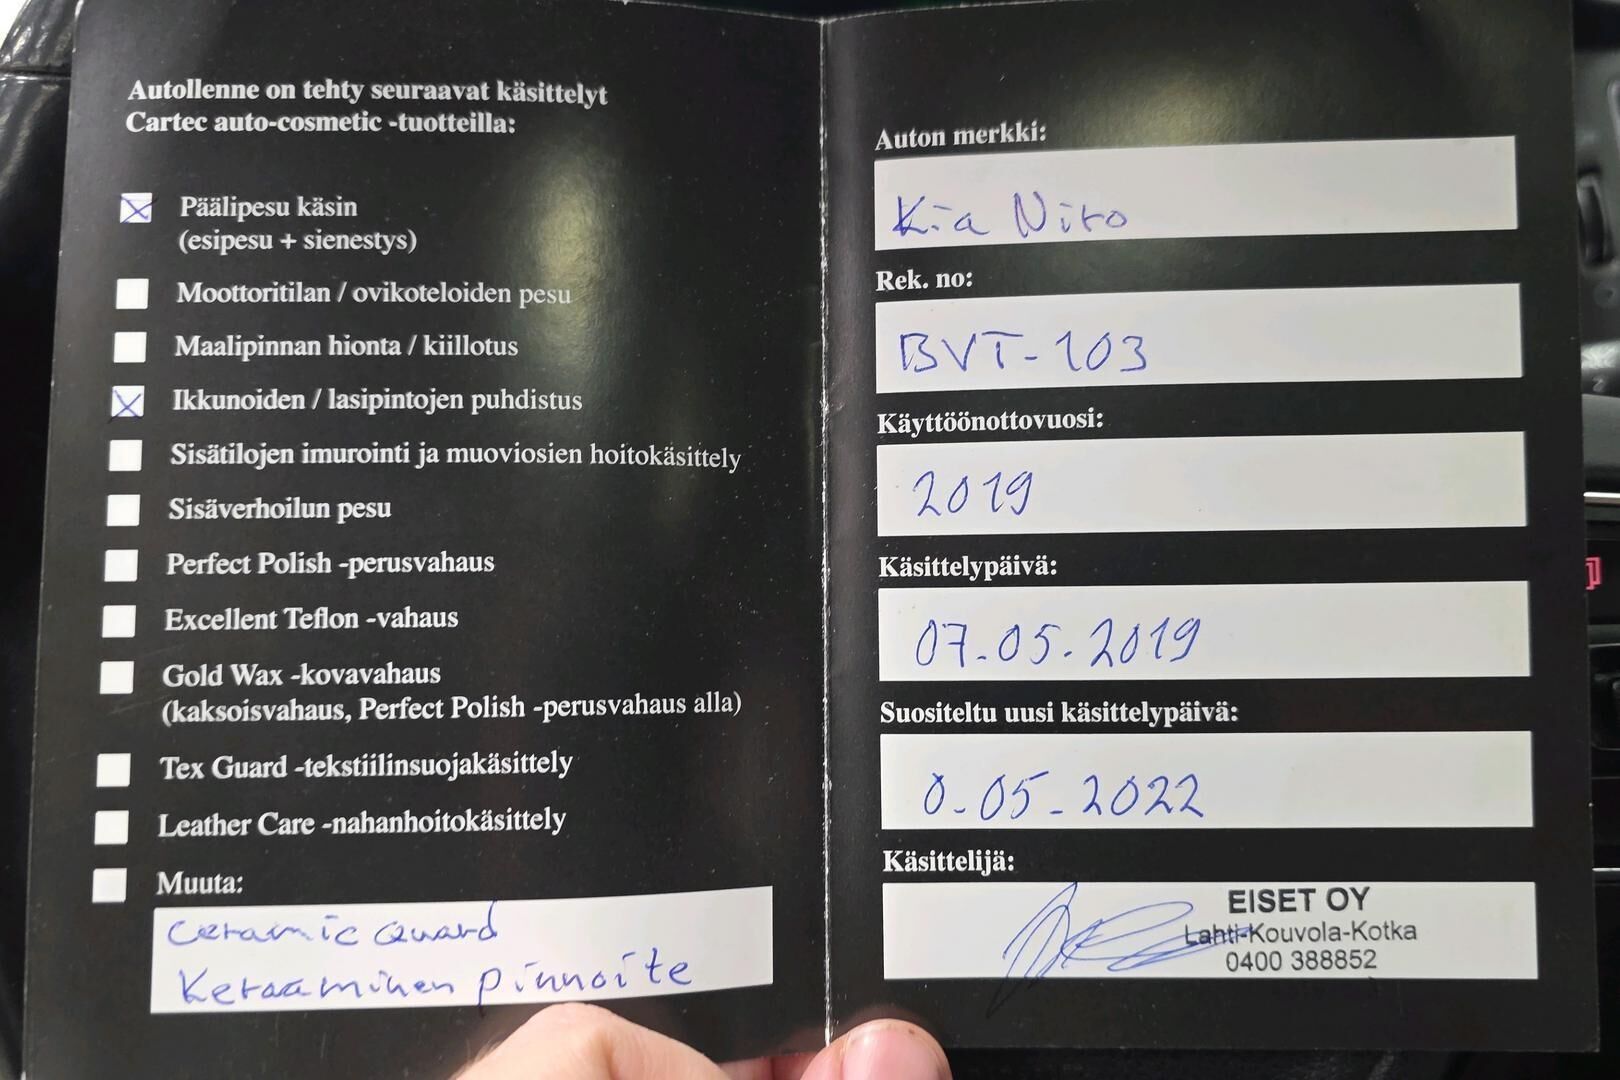 Autollenne on tehty seuraavat käsittelyt
Cartec auto-cosmetic -tuotteilla:
Päälipesu käsin
(esipesu + sienestys)
Moottoritilan / ovikoteloiden pesu
Maalipinnan hionta / kiillotus
Ikkunoiden / lasipintojen puhdistus
Sisätilojen imurointi ja muoviosien hoitokäsittely
Sisäverhoilun pesu
Perfect Polish -perusvahaus
Excellent Teflon -vahaus
Gold Wax -kovavahaus
(kaksoisvahaus, Perfect Polish -perusvahaus alla)
Tex Guard -tekstiilinsuojakäsittely
Leather Care -nahanhoitokäsittely
Muuta:
Ceramic Quard
Keraaminen pinnoite
Auton merkki:
Kia Niro
Rek. no:
BVT-103
Käyttöönottovuosi:
2019
Käsittelypäivä:
07.05.2019
Suositeltu uusi käsittelypäivä:
0-05-2022
Käsittelijä:
EISET OY
Lahti-Kouvola-Kotka
0400 388852